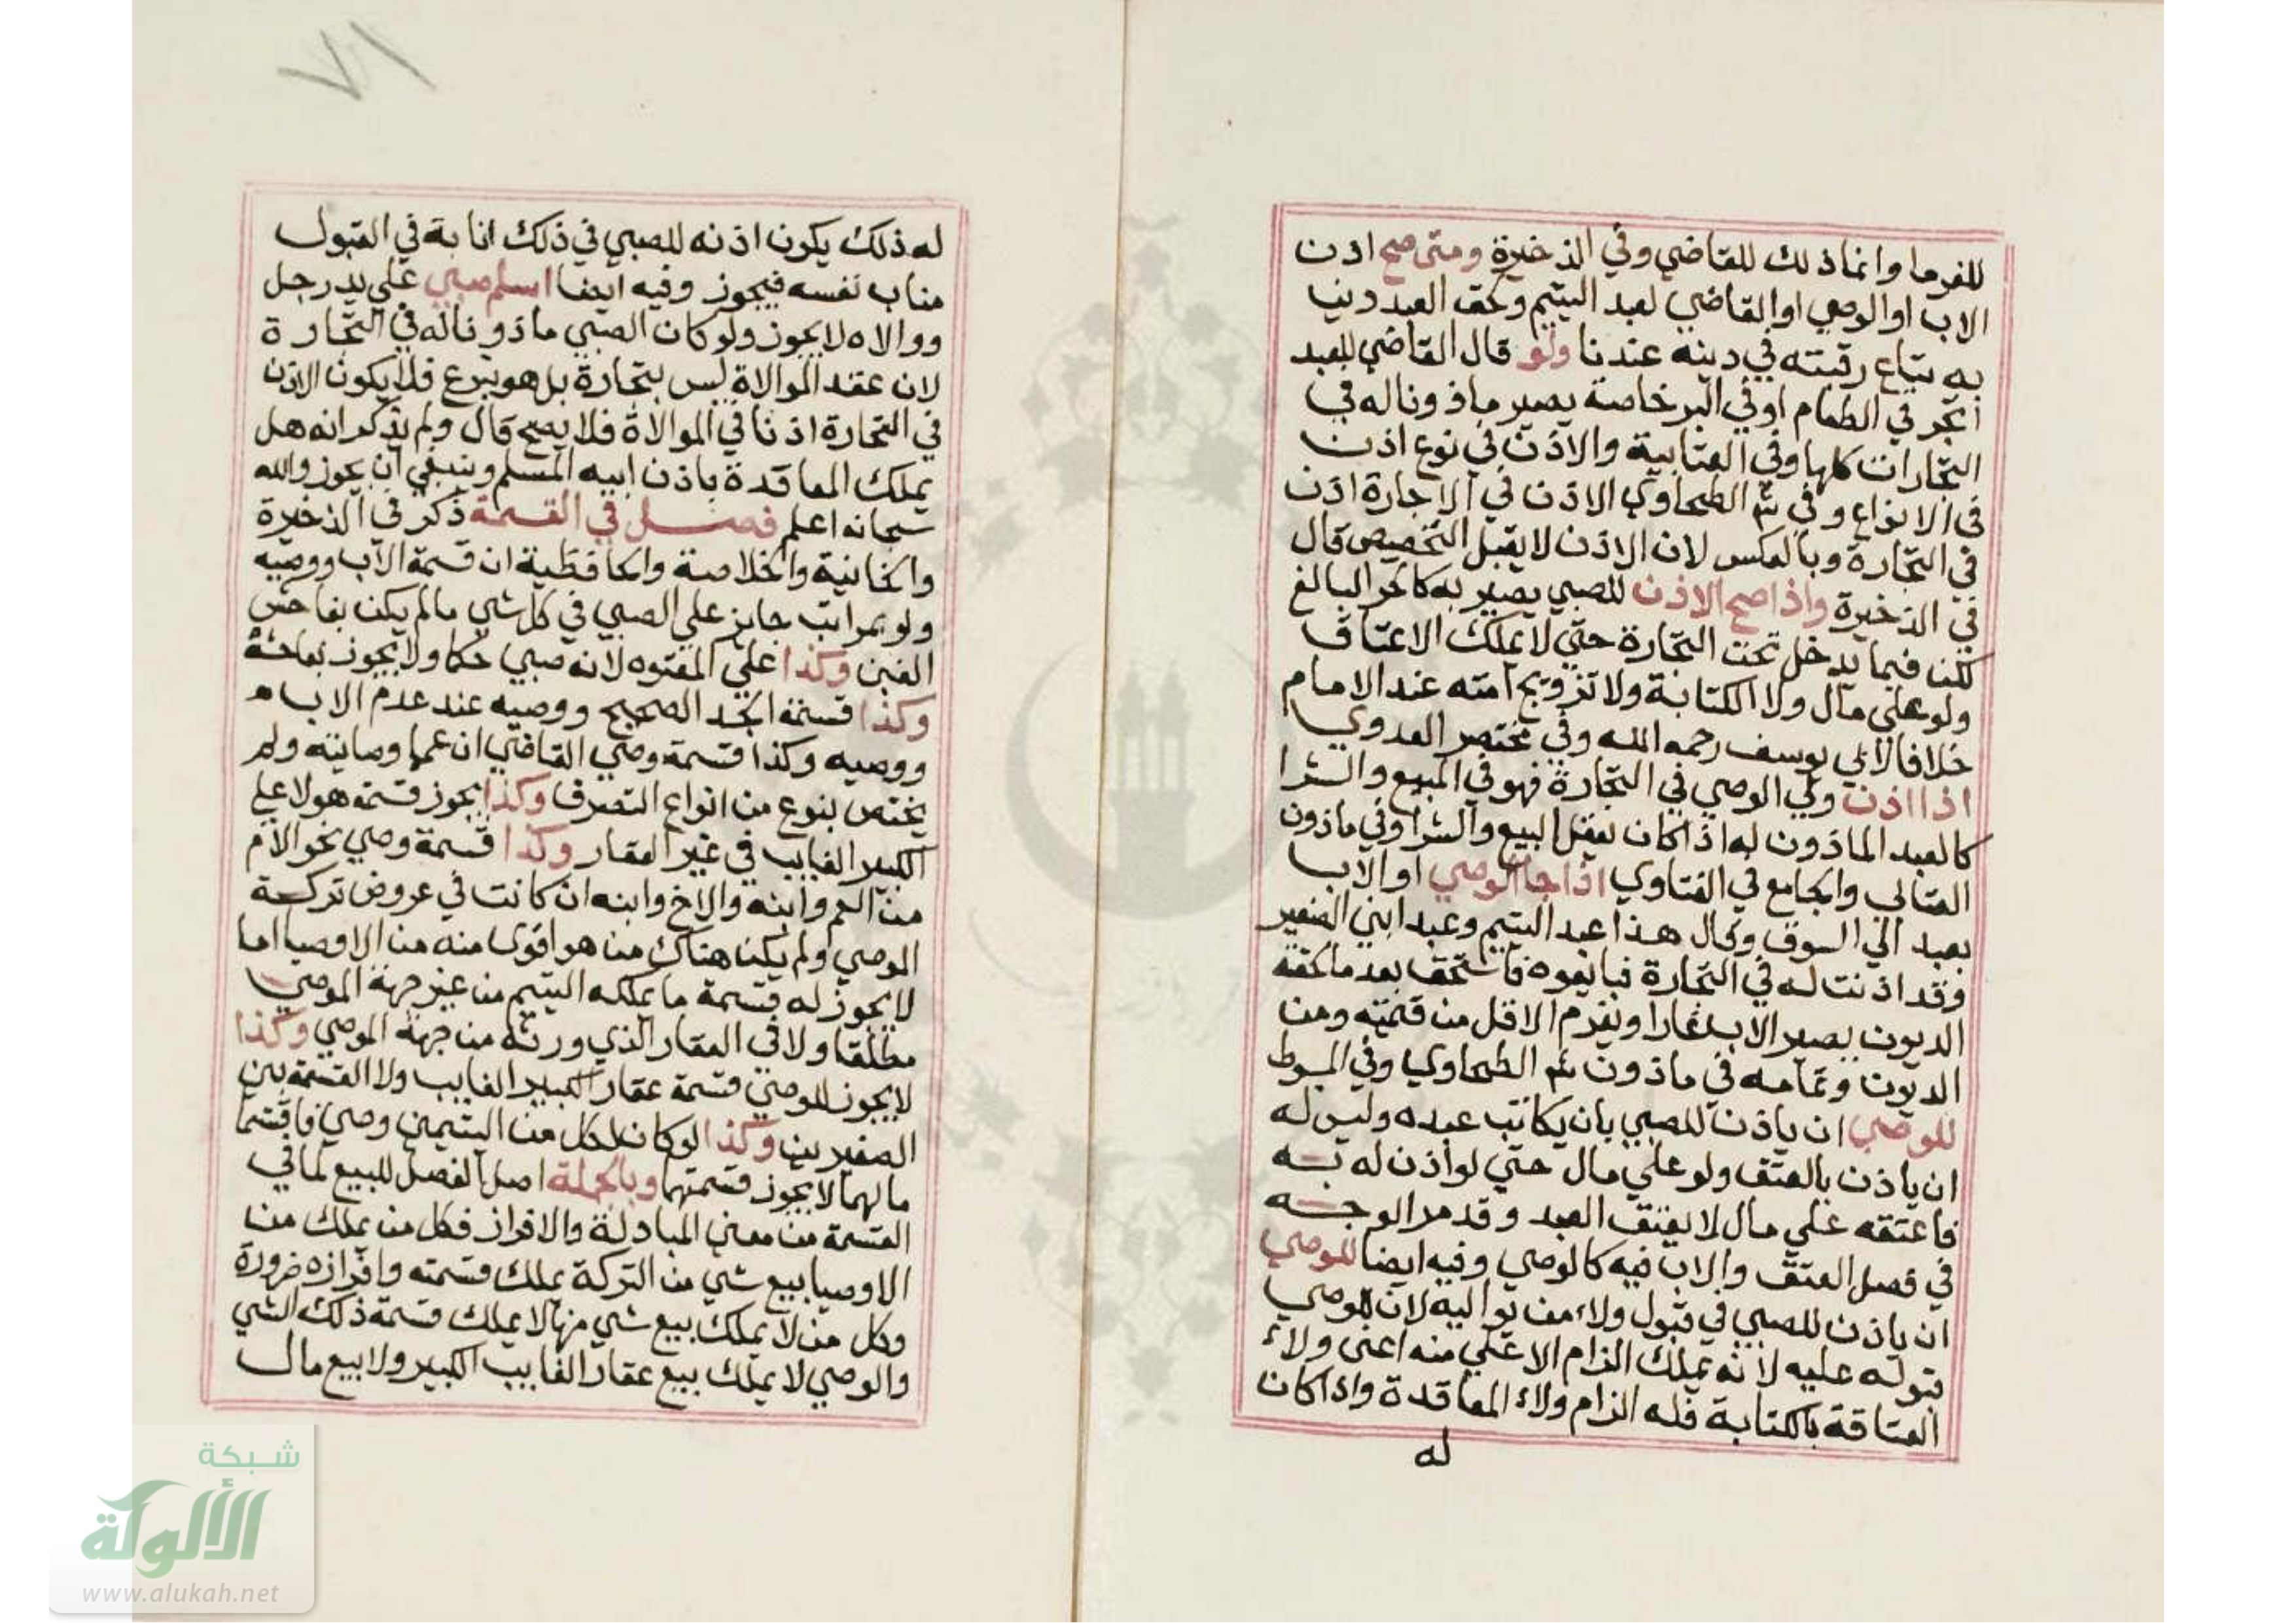 للغرما وانما ذلك للقاضي وفي الذخيرة ومتى صح اذن
الاب او الوصي او القاضي لعبد اليتيم ولحق العبد دينا
به يباع رقبته في دينه عندنا ولو قال القاضي للعبد
اتجر في الطعام او في البر خاصة يصير ماذونا له في
التجارات كلها وفي العتابية والاذن في نوع اذن
في الانواع وفي شرح الطحاوي الاذن في الاجارة اذن
في التجارة وبالعكس لان الاذن لا يقبل التخصيص قال
في الذخيرة واذا صح الاذن للصبي يصير به كالحر البالغ
لكن فيما يدخل تحت التجارة حتي لا يملك الاعتاق
ولو علي مال ولا الكتابة ولا تزويج امته عند الامام
خلافا لابي يوسف رحمه الله وفي مختصر القدوري
اذا اذن ولي الوصي في التجارة فهو في المبيع والشرا
كالعبد الماذون له اذا كان يعقل البيع والشرا وفي ماذون
العتابي والجامع في الفتاوي اذا جا الوصي او الاب
بعبد الي السوق وقال هذا عبد اليتيم وعبد ابني الصغير
وقد اذنت له في التجارة فبايعوه فاستحق بعد ما لحقه
الديون يصير الاب غارا ويغرم الاقل من قيمته ومن
الديون وتمامه في ماذون شرح الطحاوي وفي المبسوط
للوصي ان ياذن للصبي بان يكاتب عبده وليس له
ان ياذن بالعتق ولو علي مال حتي لو اذن له به
فاعتقه علي مال لا يعتق العبد وقد مر الوجه
في فصل العتق والاب فيه كالوصي وفيه ايضا للوصي
ان ياذن للصبي في قبول ولاء من يواليه لان للوصي
قبوله عليه لانه يملك الزام الاعلي منه اعنى ولاء
العتاقة بالكتابة فله الزام ولاء المعاقدة واذا كان
له
٧١
له ذلك يكون اذنه للصبي في ذلك انابة في القبول
مناب نفسه فيجوز وفيه ايضا اسلم صبي علي يد رجل
ووالاه لا يجوز ولو كان الصبي ماذونا له في التجارة
لان عقد الموالاة ليس بتجارة بل هو تبرع فلا يكون الاذن
في التجارة اذنا في الموالاة فلا يصح قال ولم يذكر انه هل
يملك المعاقدة باذن ابيه المسلم وينبغي ان يجوز والله
سبحانه اعلم فصل في القسمة ذكر في الذخيرة
والخانية والخلاصة والحافظية ان قسمة الاب ووصيه
ولو بمراتب جايز علي الصبي في كل شي ما لم يكن بفاحش
الغبن وكذا علي المعتوه لانه صبي حكما ولا يجوز بفاحشة
وكذا قسمة الجد الصحيح ووصيه عند عدم الاب
ووصيه وكذا قسمة وصي القاضي ان عم ايصائيه ولم
يختص بنوع من انواع التصرف وكذا يجوز قسمة هولا علي
الكبير الغايب في غير العقار وكذا قسمة وصي نحو الام
من العم وابنه والاخ وابنه ان كانت في عروض تركة
الموصي ولم يكن هناك من هو اقوى منه من الاوصيا اما
لا يجوز له قسمة ما يملكه اليتيم من غير جهة الموصي
مطلقا ولا في العقار الذي ورثه من جهة الموصي وكذا
لا يجوز للوصي قسمة عقار الكبير الغايب ولا القسمة بين
الصغيرين وكذا لو كان لكل من اليتيمين وصي فاقتسما
ما لهما لا يجوز قسمتهما وبالجملة اصل الفصل للبيع لما في
القسمة من معني المبادلة والافراز فكل من يملك من
الاوصيا بيع شي من التركة يملك قسمته وافرازه ضرورة
وكل من لا يملك بيع شي منها لا يملك قسمة ذلك الشي
والوصي لا يملك بيع عقار الغايب الكبير ولا بيع مال
شبكة
الألوكة
www.alukah.net